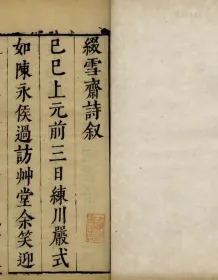 綴雪齋詩叙
己巳上元前三日練川嚴式
如陳永侯過訪艸堂余笑迎